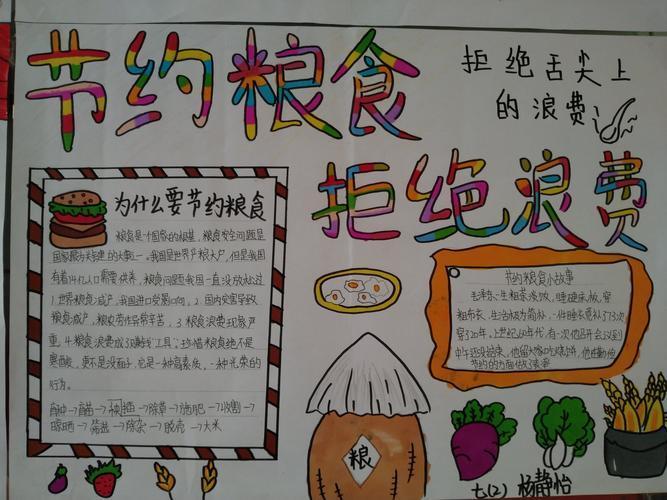 节约粮食
拒绝舌尖上
的浪费
拒绝浪费
为什么要节约粮食
粮食是一个国家的根基，粮食安全问题是
国家最为关注的大事之一。我国是世界产粮大户，但是我国
有着14亿人口需要供养，粮食问题我国一直没放松过
1世界粮食减产，我国进口贸易口响，2国内灾害导致
粮食减产，粮农劳作异常辛苦，3粮食浪费现象严
重。4粮食浪费成工具；珍惜粮食绝不是
寒酸，更不是没面子，它是一种高素质、一种光荣的
行为。
育种→育苗→插→除草→施肥→收割→
晾晒→筛选→除杂→脱壳→大米
节约粮食小故事
毛泽东、生粗茶淡饭，睡硬床板，穿
粗布衣，生活极为简朴，一件睡衣补了73次
穿了20年，上世纪年代有一次他召开会议到
中午还没结束，他留大家吃烧饼，他
节约的方面做了表率
粮
七(2) 杨静怡